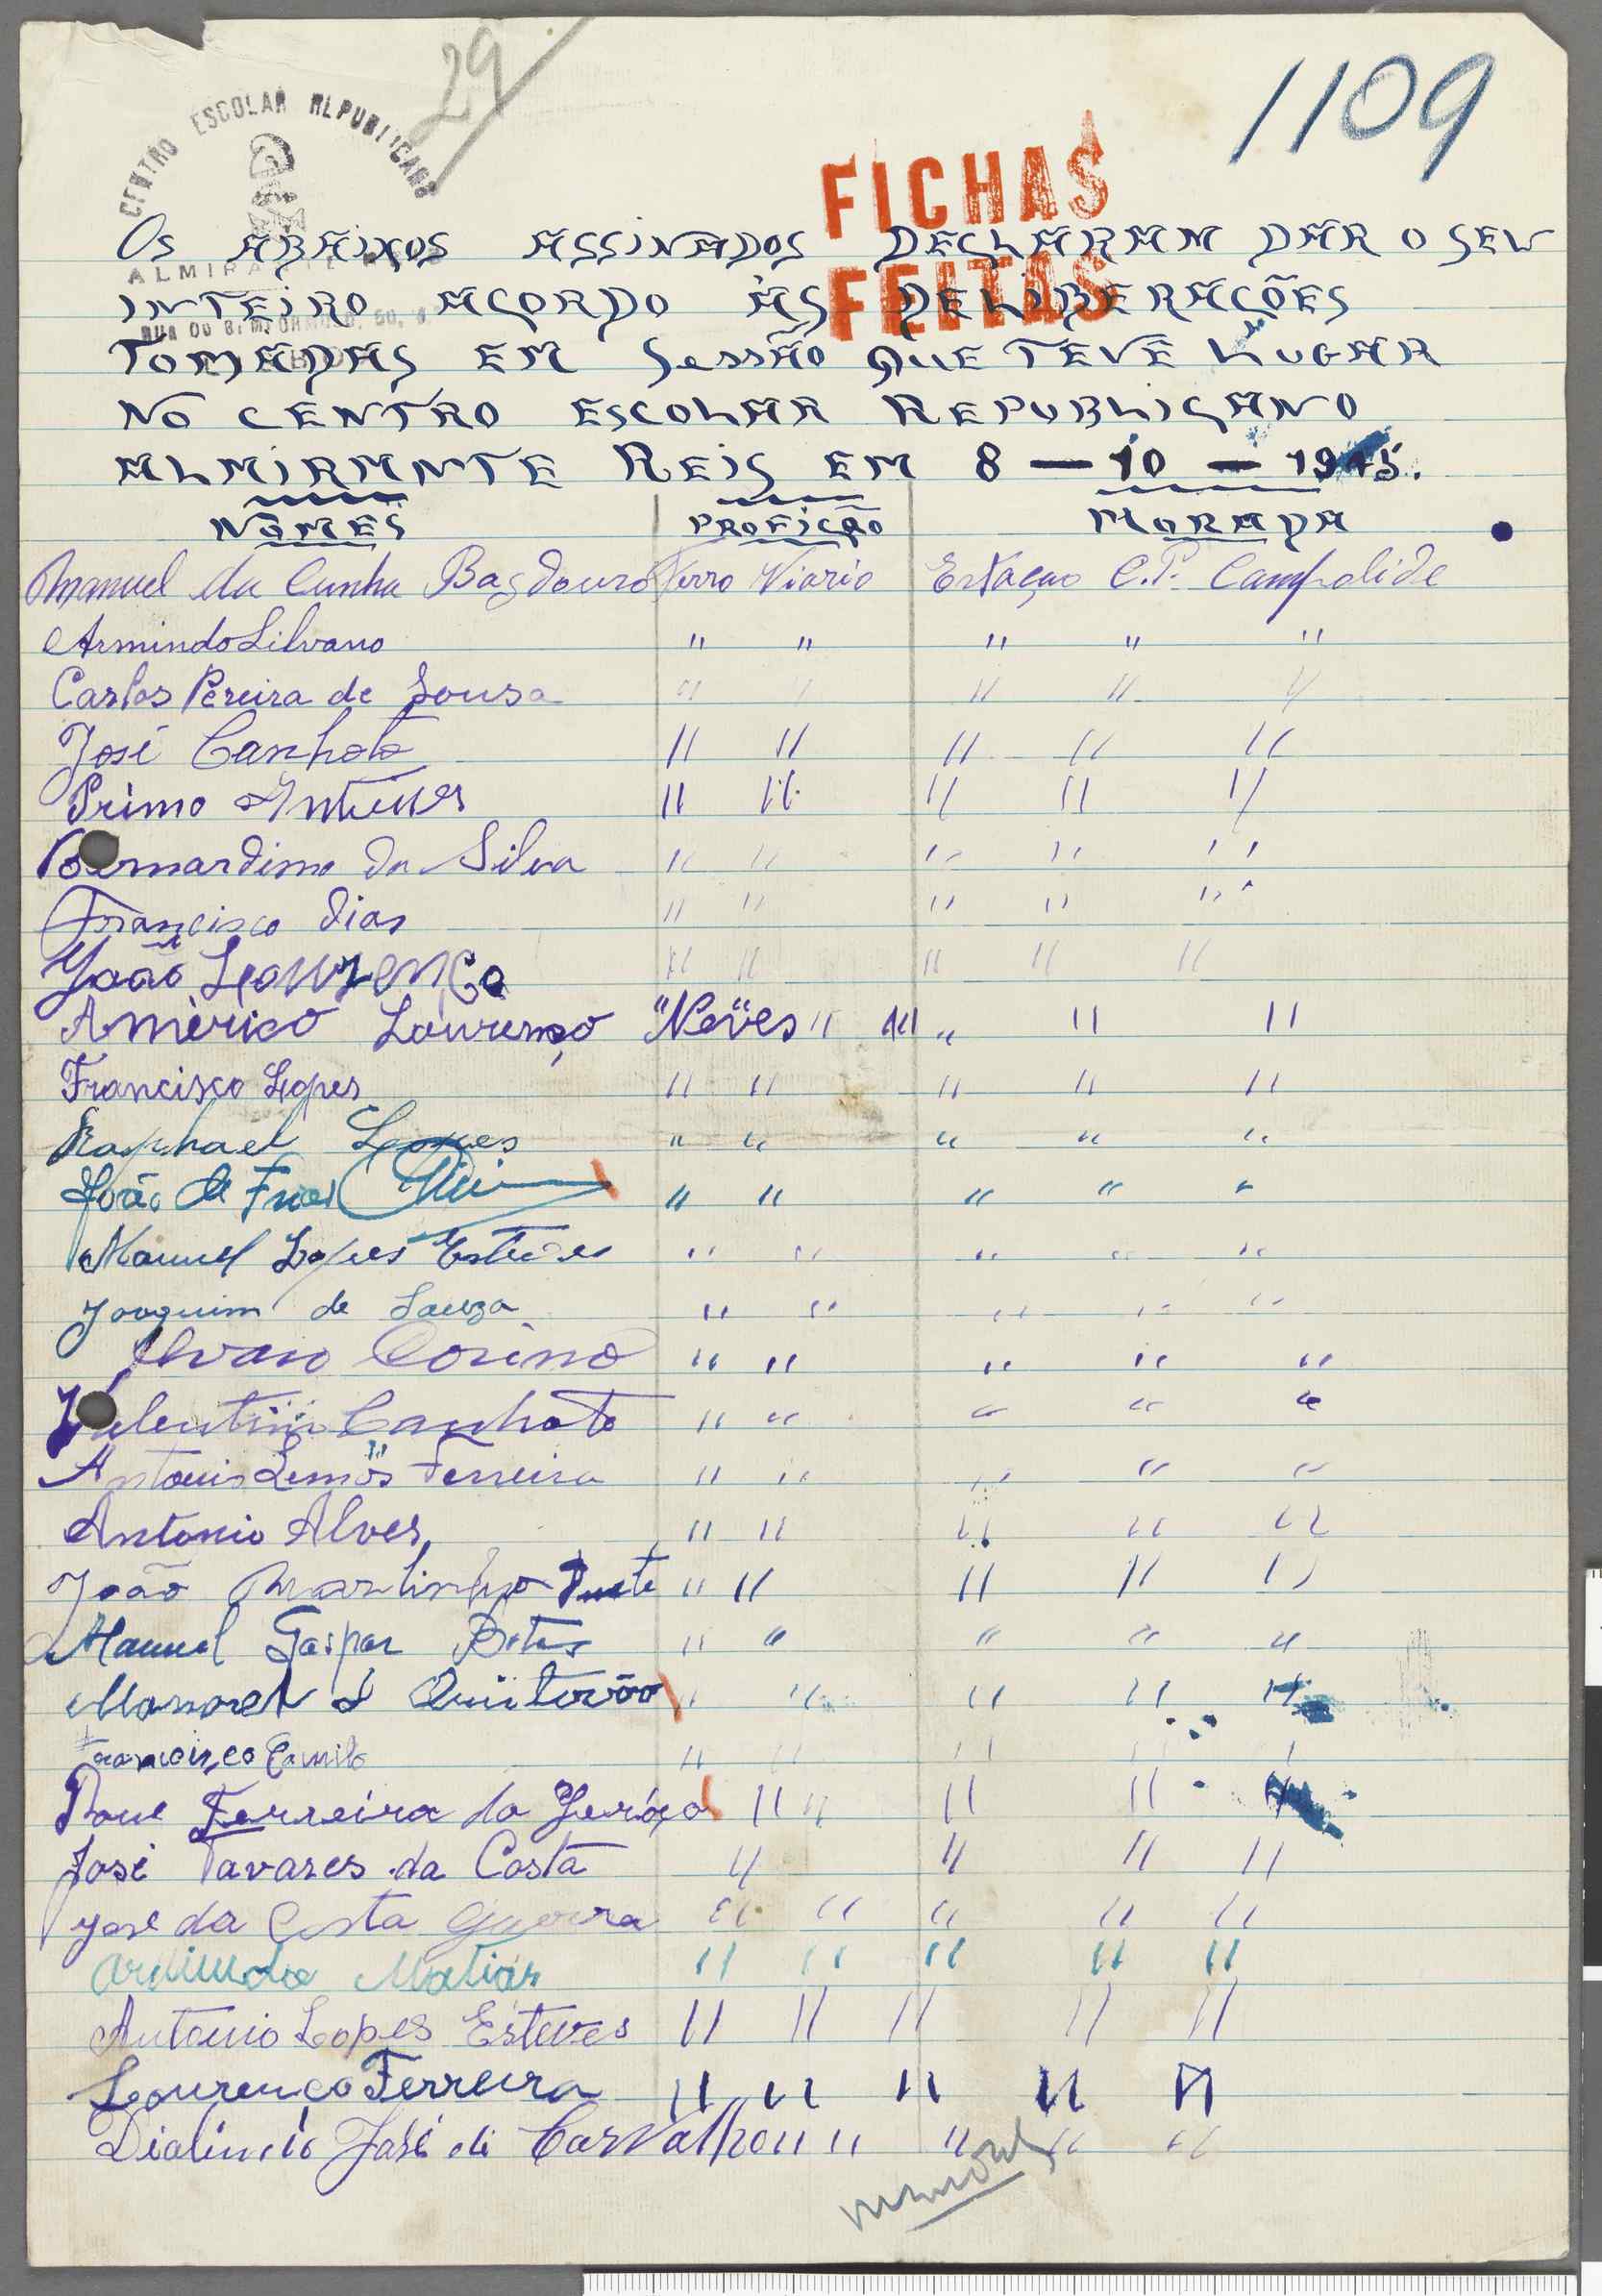 29
1109
CENTRO ESCOLAR REPUBLICANO
FICHAS
FEITAS
ALMIRANTE
Os ABAIXOS ASSINADOS DECLARAM DAR O SEU
INTEIRO ACORDO ÀS DELIBERAÇÕES
TOMADAS EM SesSÃO QUE TEVE LUGAR
NO CENTRO ESCOLAR REPUBLICANO
ALMIRANTE REIS EM 8 — 10 — 1945.
NOMES PROFIÇÃO MORADA
Manuel da Cunha Ferro Viario Estaçao C.P. Campolide
Armindo Silvano " " " " "
Carlos Pereira de Sousa " " " " "
José Canhoto " " " " "
Primo Antunes " " " " "
Bernardino da Silva " " " " "
Francisco Dias " " " " "
João Lourenço " " " " "
Américo Lourenço "Neves" " " " "
Francisco Lopes " " " " "
Raphael Lopes " " " " "
João de " " " " "
Manuel Lopes Esteves " " " " "
Joaquim de Souza " " " " "
Alvaro Corino " " " " "
Valentim Canhoto " " " " "
Antonio Lemos Ferreira " " " " "
Antonio Alves " " " " "
João Martinho " " " " "
Manuel Gaspar " " " " "
" " " " "
Francisco Camilo " " " " "
Ferreira da " " " " "
José Tavares da Costa " " " "
José da Costa Guerra " " " " "
Matias " " " " "
Antonio Lopes Esteves " " " " "
Lourenço Ferreira " " " " "
José de Carvalho " " " " "